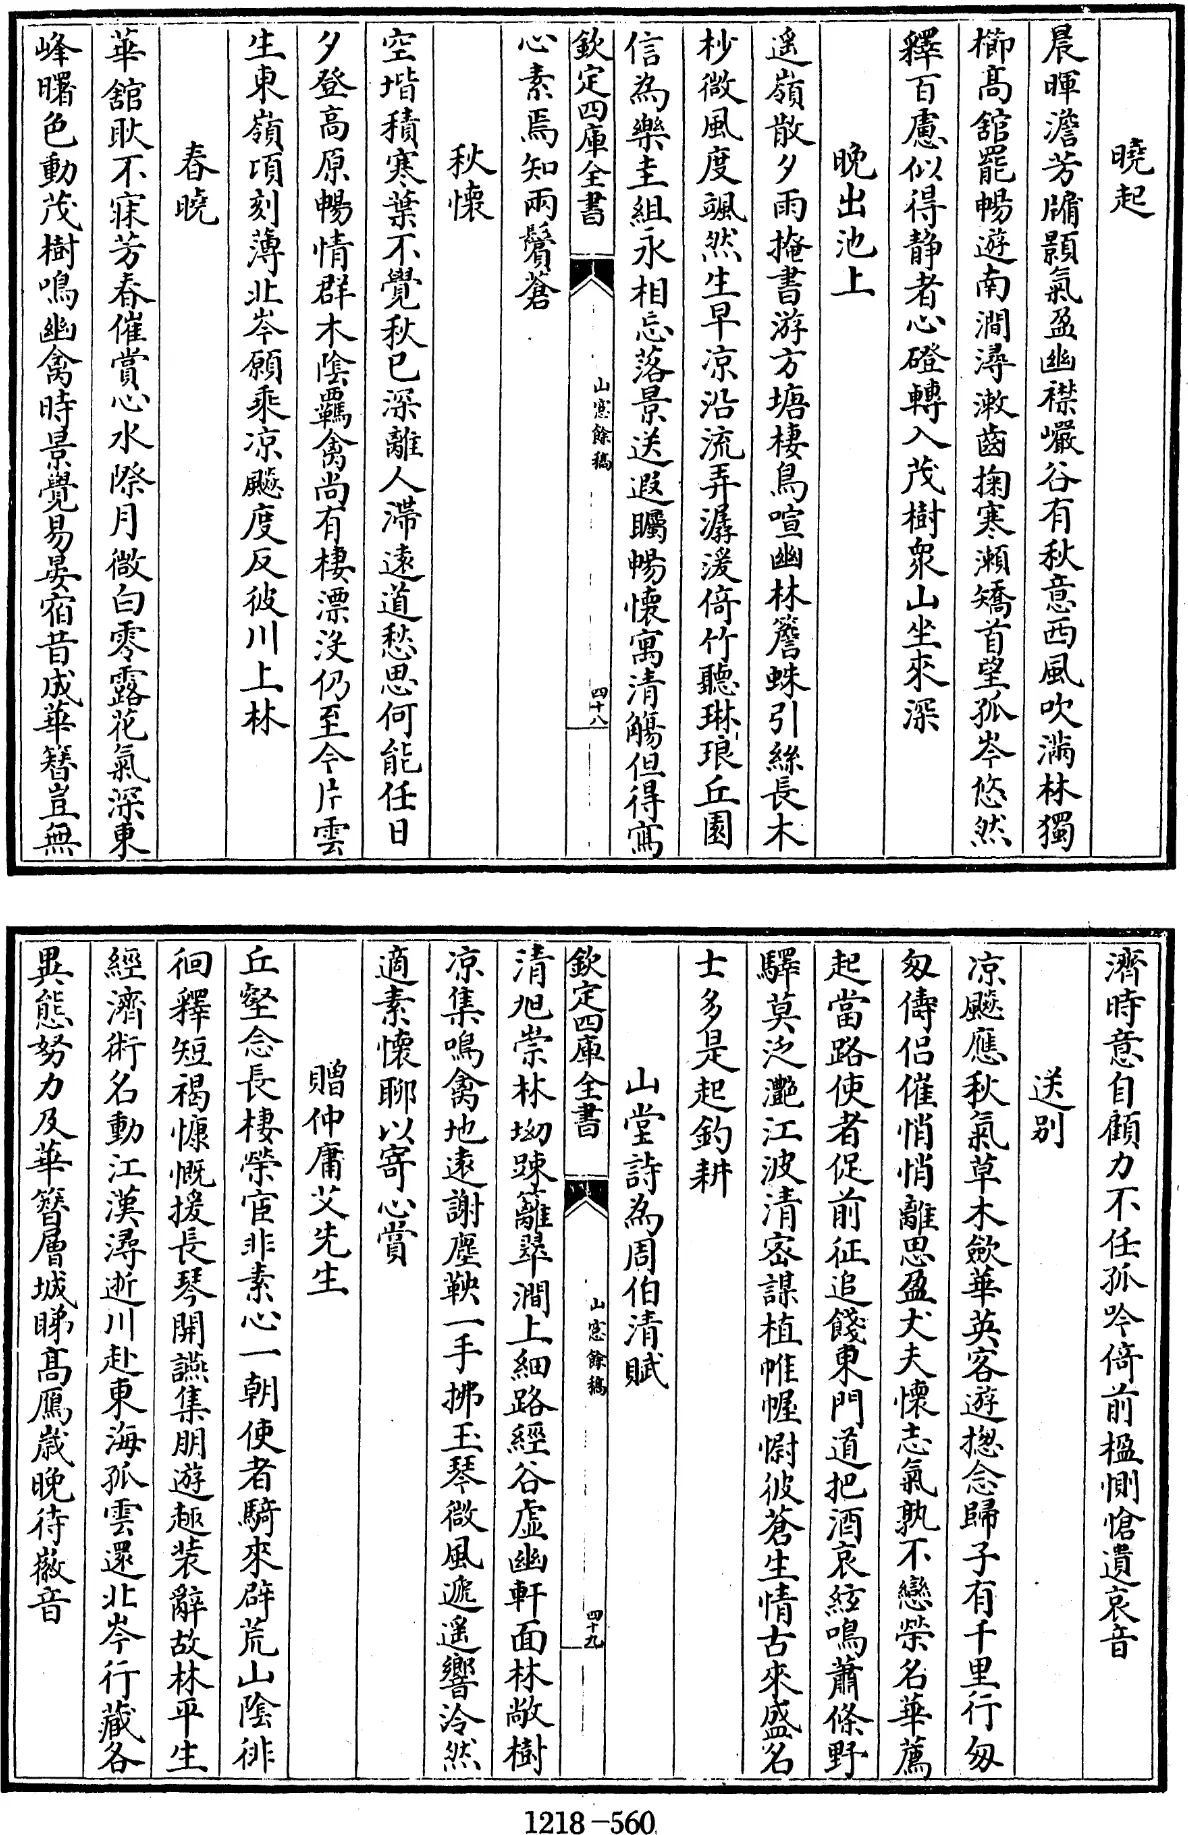 曉起
晨暉澹芳牖顥氣盈幽襟巖谷有秋意西風吹滿林獨
櫛髙舘罷暢遊南澗潯漱齒掬寒瀨矯首望孤岑悠然
釋百慮似得靜者心磴轉入茂樹衆山坐來深
晚出池上
遥嶺散夕雨掩書游方塘棲鳥喧幽林簷蛛引絲長木
杪微風度颯然生早凉沿流弄潺湲倚竹聽琳琅丘園
信為樂圭組永相忘落景送遐矚暢懷寓清觴但得寫
欽定四庫全書
山窻餘稿
四十八
心素焉知兩鬢蒼
秋懷
空堦積寒葉不覺秋已深離人滯遠道愁思何能任日
夕登高原暢情群木陰羈禽尚有棲漂沒仍至今片雲
生東嶺項刻薄北岑願乘凉飈度反彼川上林
春曉
華舘耿不寐芳春催賞心水際月微白零露花氣深東
峰曙色動茂樹鳴幽禽時景覺易晏宿昔成華簪豈無
濟時意自顧力不任孤吟倚前楹惻愴遺哀音
送别
凉飈應秋氣草木斂華英客遊揔念歸子有千里行匆
匆儔侣催悄悄離思盈丈夫懷志氣孰不戀榮名華薦
起當路使者促前征追餞東門道把酒哀絃鳴蕭條野
驛莫泛灔江波清宻謀植帷幄慰彼蒼生情古來盛名
士多是起釣耕
山堂詩為周伯清賦
欽定四庫全書
山窻餘稿
四十九
清旭崇林坳踈籬翠澗上細路經谷虚幽軒面林敞樹
凉集鳴禽地遠謝塵鞅一手拂玉琴微風遞遥響泠然
適素懷聊以寄心賞
贈仲庸艾先生
丘壑念長棲榮宦非素心一朝使者騎來辟荒山陰徘
徊釋短褐慷慨援長琴開讌集朋遊趣装辭故林平生
經濟術名動江漢潯逝川赴東海孤雲還北岑行藏各
異態努力及華簪層城睇髙鴈歲晚待徽音
1218-560